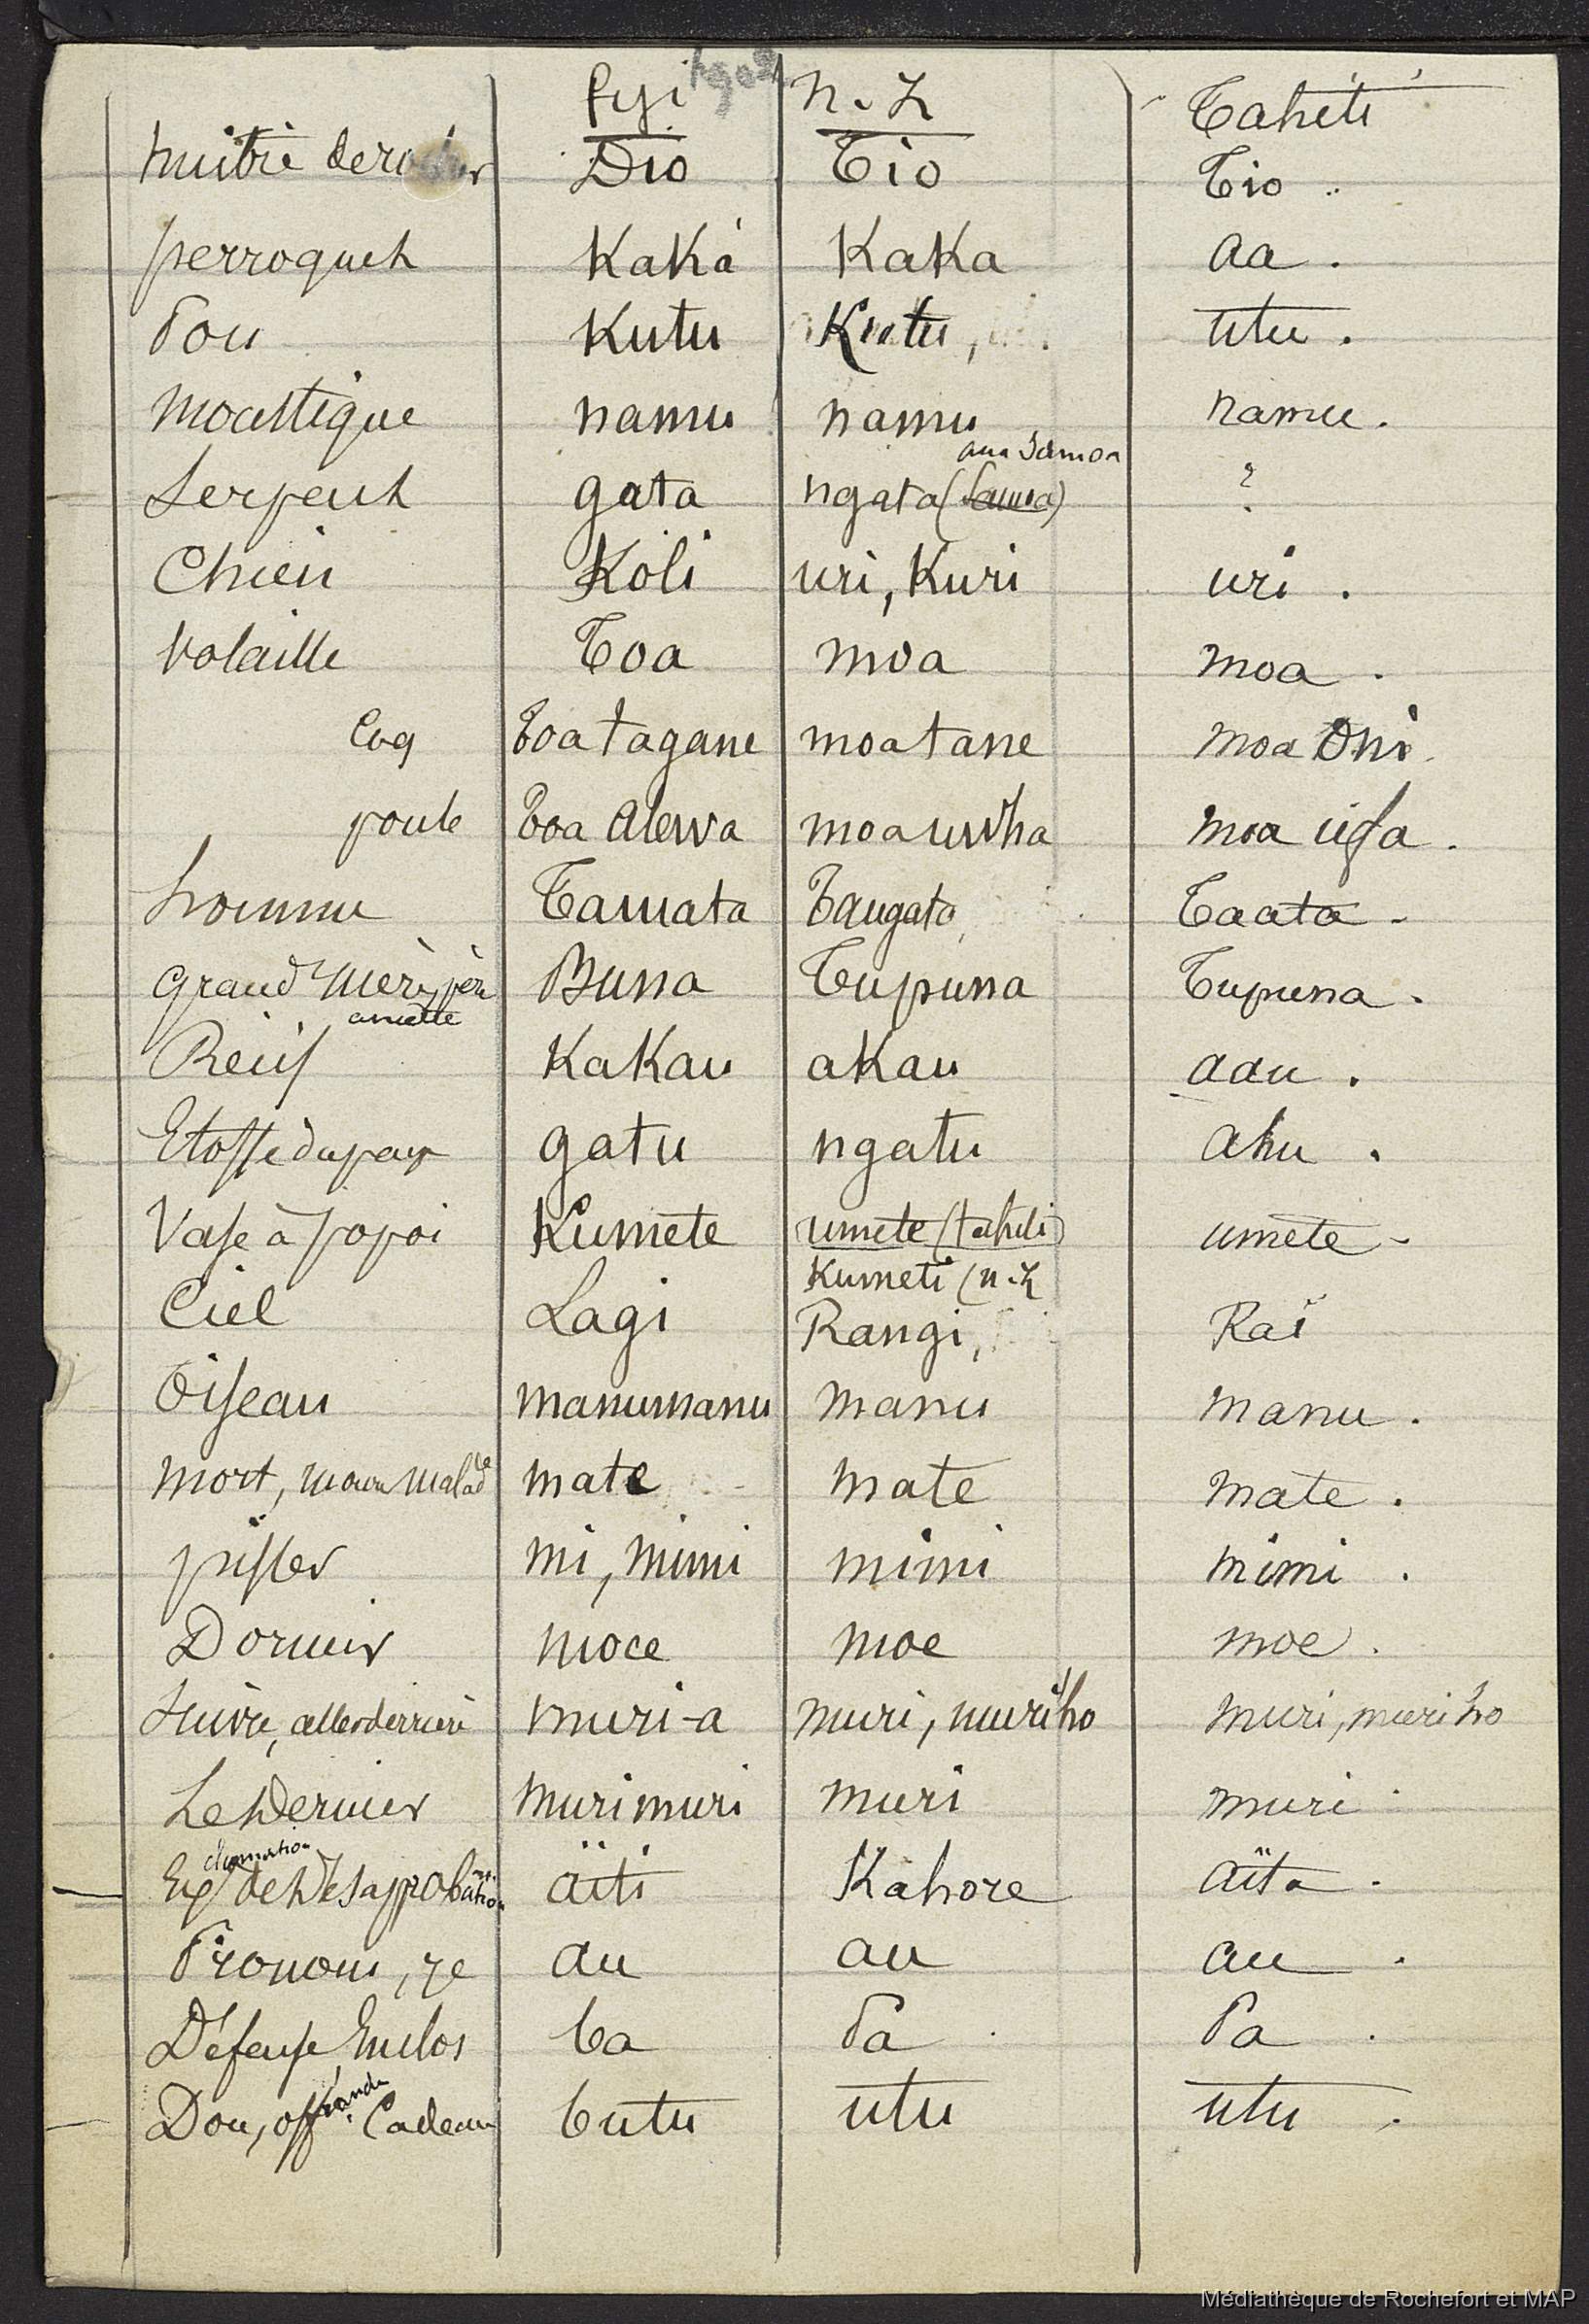 fyi n.Z Tahiti
huitre de rocher Dio Tio Tio
perroquet Kaká Kaka aa.
Pou Kutu Kutu, utu.
moustique namu namu namu.
aux Samoa
Serpent gata ngata (Samoa) ?
Chien Koli uri, Kuri uri.
Volaille Toa moa moa.
Coq Toa tagane moa tane moa Oni.
poule Toa Alewa moa uwha moa ufa.
homme Tamata Tangata Taata-
Grand mère, père Buna Tupuna Tupuna.
ancêtre
Récif Kakau akau aau.
Etoffe du pays gatu ngatu ahu.
Vase à popoi Kumete umete (tahiti) umete-
Kumeti (n.Z
Ciel Lagi Rangi, Raï
Oiseau manumanu manu manu.
mort, mourir malade mate mate mate.
pisser mi, mimi mimi mimi.
Dormir moce moe moe.
Suivre, aller derrière muri-a muri, muriho muri, muriho
Le Dernier murimuri muri muri
Exclamation de Désapprobation äiti Kahore aïta.
Pronom, je au au au.
Défense Enclos ba Pa Pa.
Don, offrande Cadeau butu utu utu.
Médiathèque de Rochefort et MAP